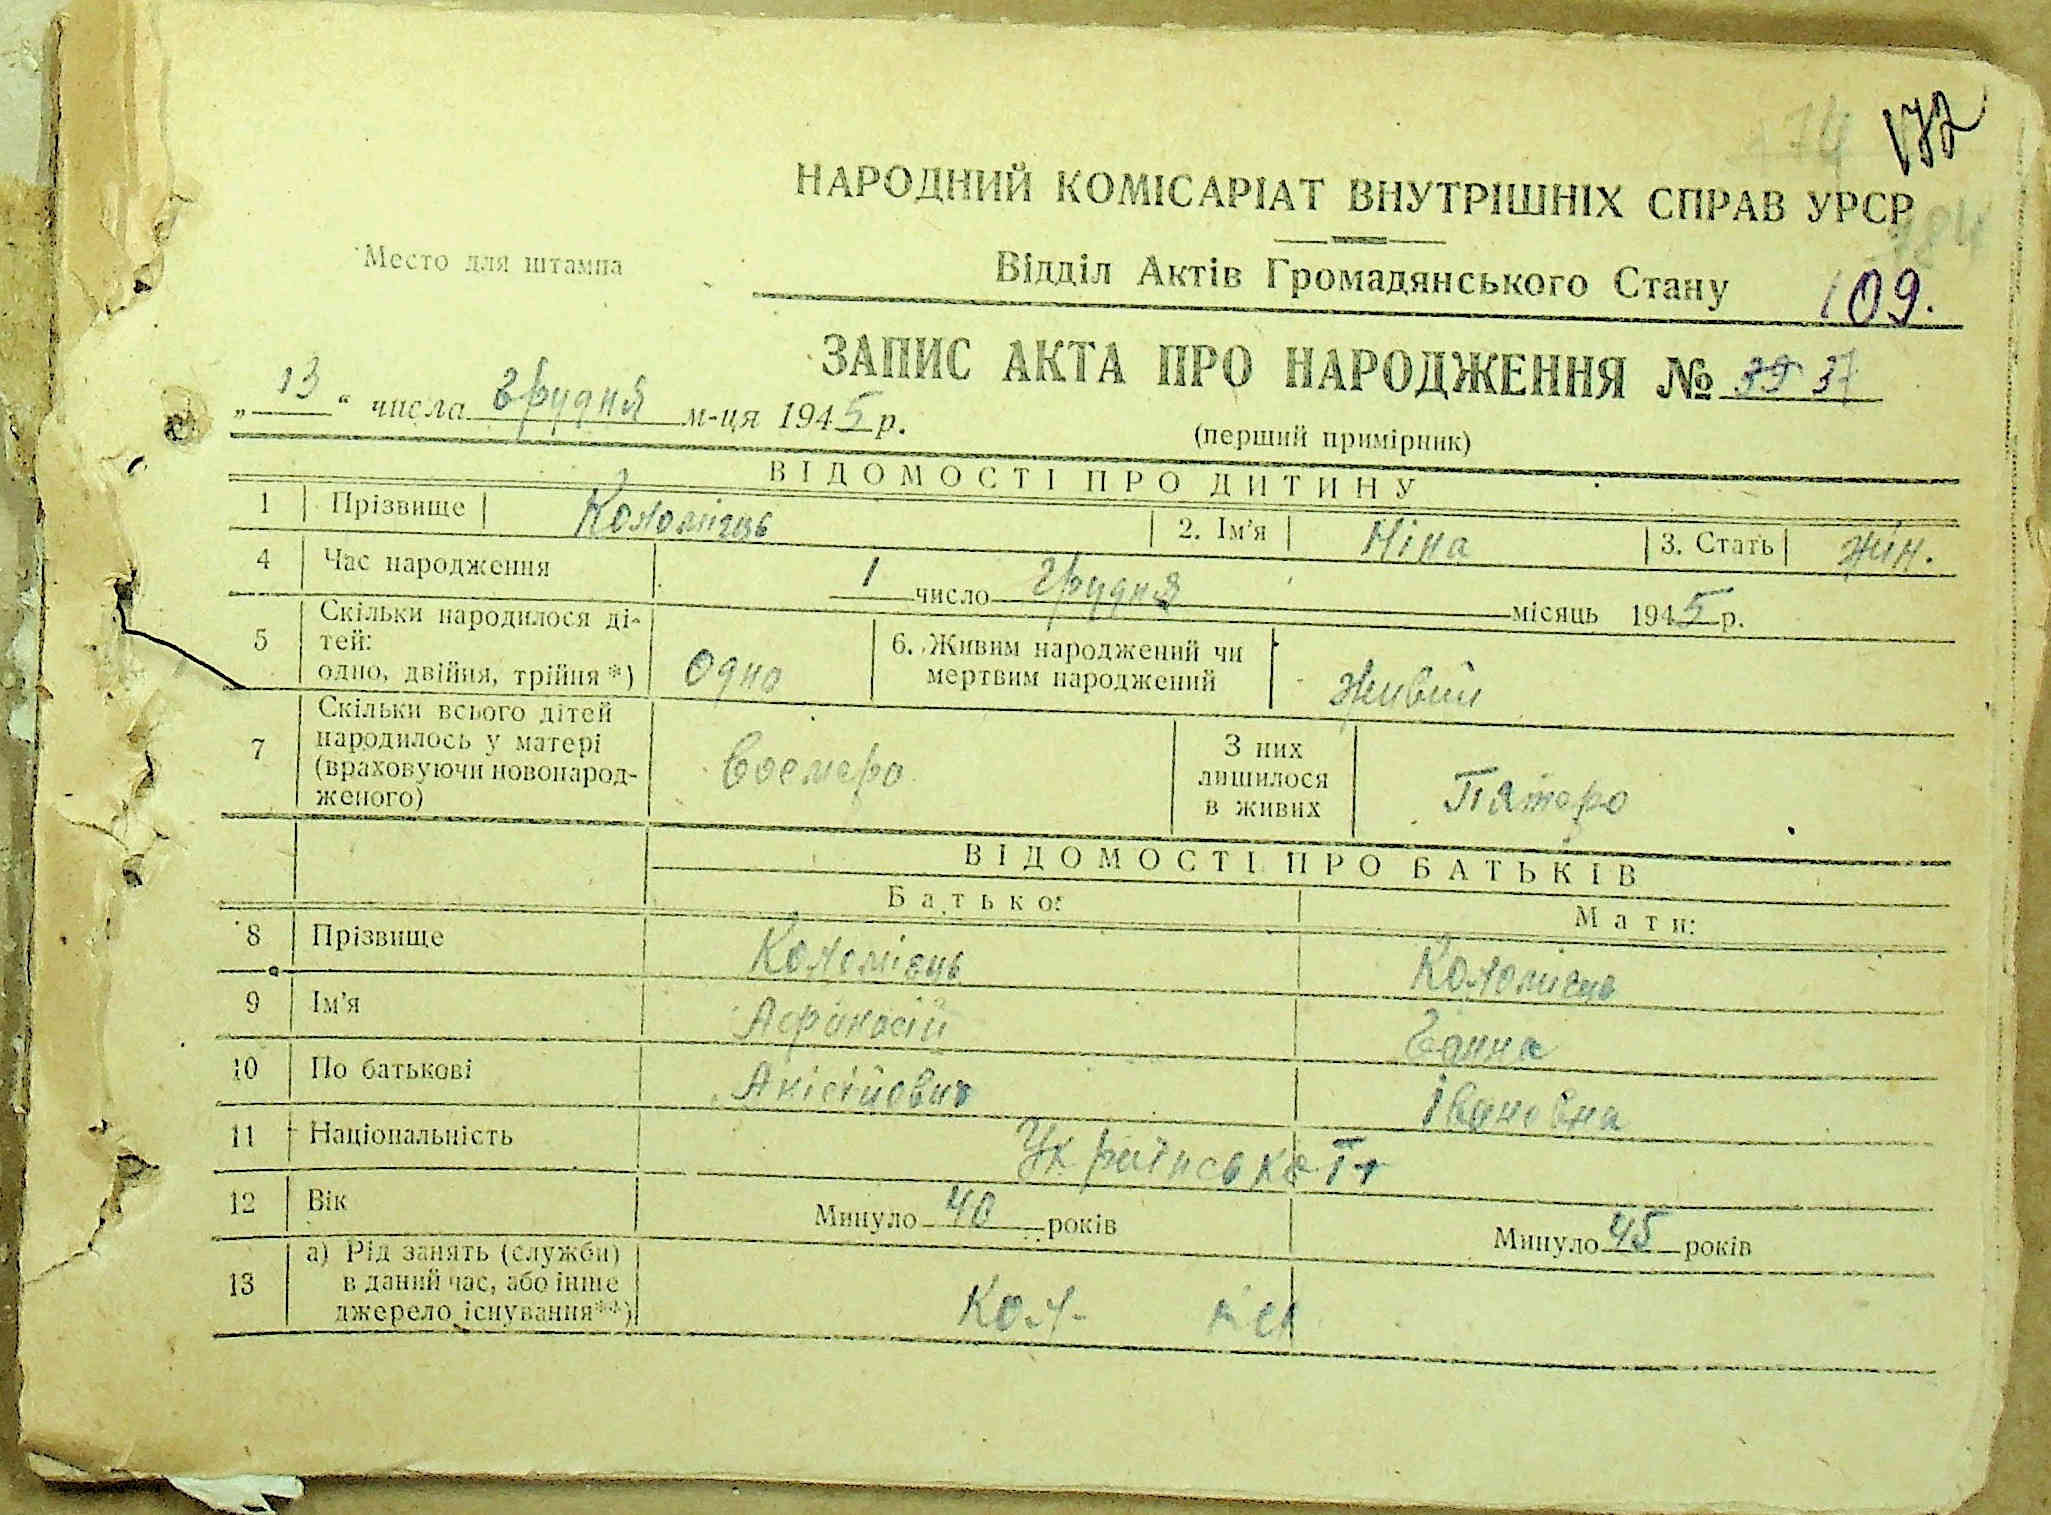 172
74
НАРОДНИЙ КОМІСАРІАТ ВНУТРІШНІХ СПРАВ УРСР
184
Место для штампа
Відділ Актів Громадянського Стану 109.
ЗАПИС АКТА ПРО НАРОДЖЕННЯ № 37
„13“ числа грудня м-ця 1945 р.
(перший примірник)
ВІДОМОСТІ ПРО ДИТИНУ
1 Прізвище Коломієць 2. Ім'я Ніна 3. Стать жін.
4 Час народження 1 число грудня місяць 1945 р.
5 Скільки народилося ді-
тей:
одно, двійня, трійня *) Одно 6. Живим народжений чи
мертвим народжений Живий
7 Скільки всього дітей
народилось у матері
(враховуючи новонарод-
женого) Восмеро З них
лишилося
в живих Пятеро
ВІДОМОСТІ ПРО БАТЬКІВ
Батько: Мати:
8 Прізвище Коломієць Коломієць
9 Ім'я Афанасій Ганна
10 По батькові Івановна
11 Національність
12 Вік Минуло 40 років Минуло 45 років
13 а) Рід занять (служби)
в даний час, або інше
джерело існування**) Кол-